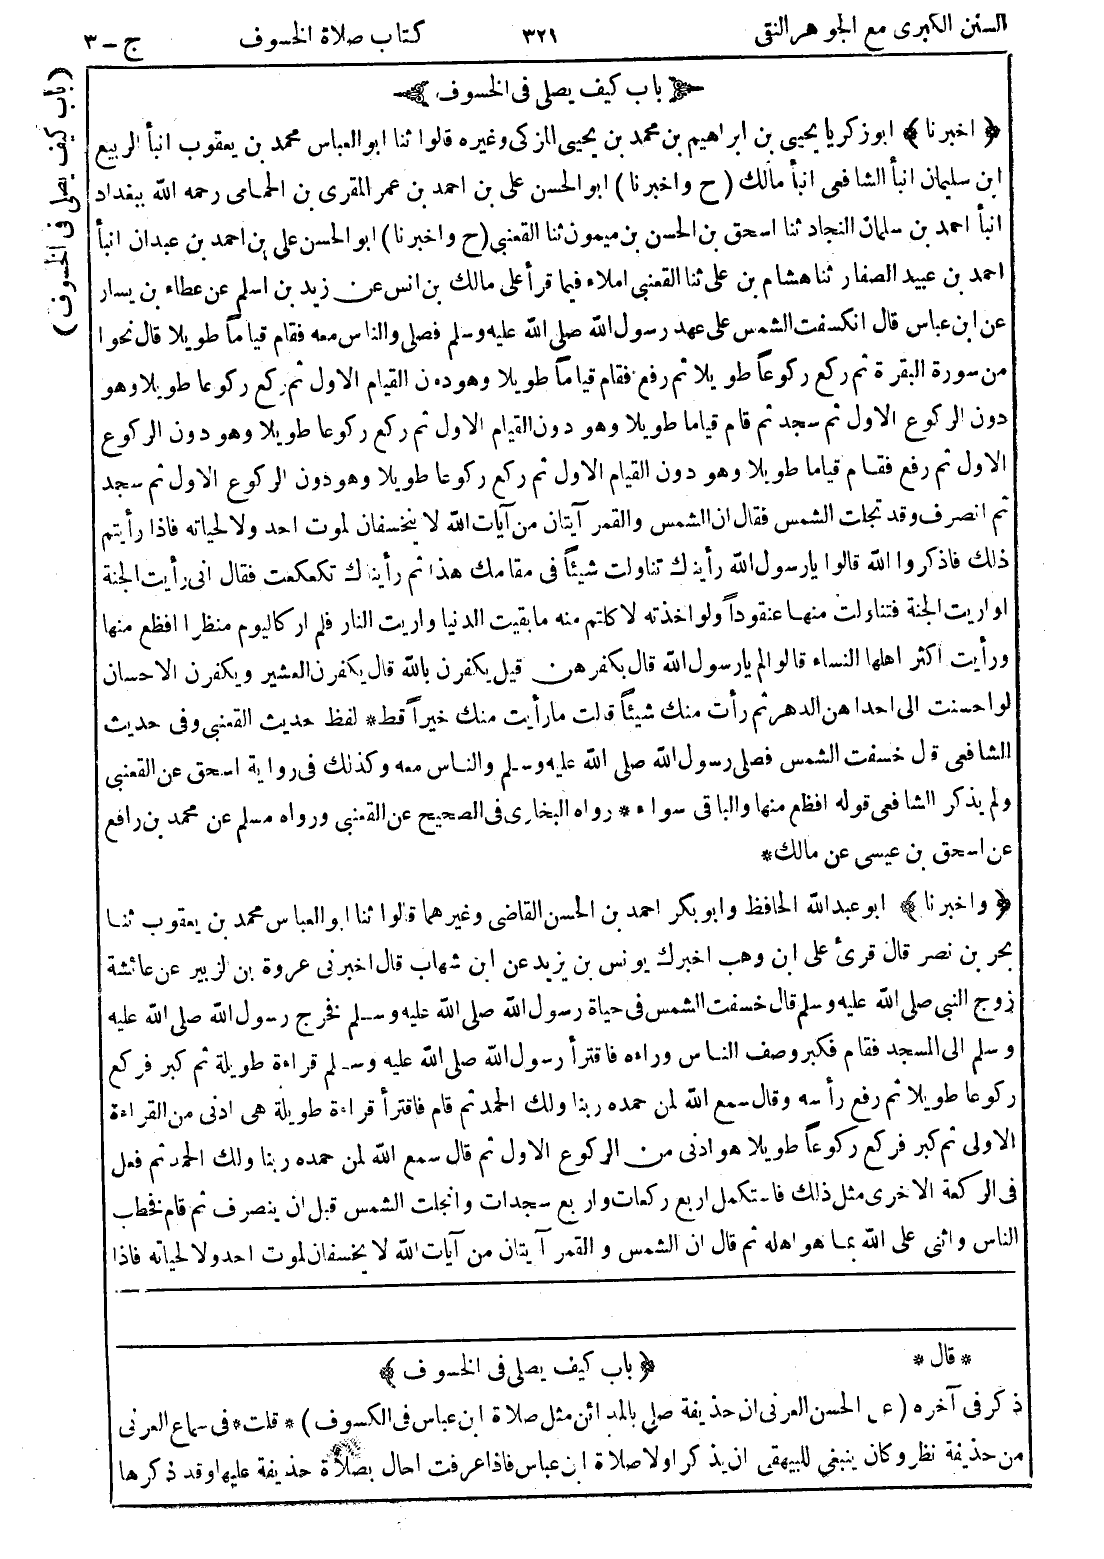 السنن الكبرى مع الجوهر النقى ٣٢١ كتاب صلاة الخسوف ج-٣
(باب كيف يصلى فى الخسوف)
باب كيف يصلى فى الخسوف
﴿ اخبرنا ﴾ ابو زكريا يحيى بن ابراهيم بن محمد بن يحيى المزكى وغيره قالوا ثنا ابو العباس محمد بن يعقوب انبأ الربيع
ابن سليمان انبأ الشافعى انبأ مالك ( ح واخبرنا ) ابو الحسن على بن احمد بن عمر المقرى بن الحمامى رحمه الله ببغداد
انبأ احمد بن سلمان النجاد ثنا اسحق بن الحسن بن ميمون ثنا القعنبى (ح واخبرنا) ابو الحسن على بن احمد بن عبدان انبأ
احمد بن عبيد الصفار ثنا هشام بن على ثنا القعنبى املاء فيما قرأ على مالك بن انس عن زيد بن اسلم عن عطاء بن يسار
عن ابن عباس قال انكسفت الشمس على عهد رسول الله صلى الله عليه وسلم فصلى والناس معه فقام قياماً طويلا قال نحوا
من سورة البقرة ثم ركع ركوعاً طويلا ثم رفع فقام قياماً طويلا وهو دون القيام الاول ثم ركع ركوعا طويلا وهو
دون الركوع الاول ثم سجد ثم قام قياما طويلا وهو دون القيام الاول ثم ركع ركوعا طويلا وهو دون الركوع
الاول ثم رفع فقام قياما طويلا وهو دون القيام الاول ثم ركع ركوعا طويلا وهو دون الركوع الاول ثم سجد
ثم انصرف وقد تجلت الشمس فقال ان الشمس والقمر آيتان من آيات الله لا ينخسفان لموت احد ولا لحياته فاذا رأيتم
ذلك فاذكروا الله قالوا يا رسول الله رأيناك تناولت شيئاً فى مقامك هذا ثم رأيناك تكعكعت فقال انى رأيت الجنة
او اريت الجنة فتناولت منها عنقوداً ولو اخذته لاكلتم منه ما بقيت الدنيا واريت النار فلم ار كاليوم منظرا افظع منها
ورأيت اكثر اهلها النساء قالوا لم يا رسول الله قال بكفرهن قيل يكفرن بالله قال يكفرن العشير ويكفرن الاحسان
لو احسنت الى احداهن الدهر ثم رأت منك شيئاً قالت ما رأيت منك خيراً قط* لفظ حديث القعنبى وفى حديث
الشافعى قال خسفت الشمس فصلى رسول الله صلى الله عليه وسلم والناس معه وكذلك فى رواية اسحق عن القعنبى
ولم يذكر الشافعى قوله افظع منها والباقى سواء* رواه البخارى فى الصحيح عن القعنبى ورواه مسلم عن محمد بن رافع
عن اسحق بن عيسى عن مالك*
﴿ واخبرنا ﴾ ابو عبد الله الحافظ وابو بكر احمد بن الحسن القاضى وغيرهما قالوا ثنا ابو العباس محمد بن يعقوب ثنا
بحر بن نصر قال قرئ على ابن وهب اخبرك يونس بن يزيد عن ابن شهاب قال اخبرنى عروة بن الزبير عن عائشة
زوج النبى صلى الله عليه وسلم قال خسفت الشمس فى حياة رسول الله صلى الله عليه وسلم فخرج رسول الله صلى الله عليه
وسلم الى المسجد فقام فكبر وصف الناس وراءه فاقترأ رسول الله صلى الله عليه وسلم قراءة طويلة ثم كبر فركع
ركوعا طويلا ثم رفع رأسه وقال سمع الله لمن حمده ربنا ولك الحمد ثم قام فاقترأ قراءة طويلة هى ادنى من القراءة
الاولى ثم كبر فركع ركوعاً طويلا هو ادنى من الركوع الاول ثم قال سمع الله لمن حمده ربنا ولك الحمد ثم فعل
فى الركعة الاخرى مثل ذلك فاستكمل اربع ركعات واربع سجدات وانجلت الشمس قبل ان ينصرف ثم قام فخطب
الناس واثنى على الله بما هو اهله ثم قال ان الشمس والقمر آيتان من آيات الله لا يخسفان لموت احد ولا لحياته فاذا
* قال * ﴿ باب كيف يصلى فى الخسوف ﴾
ذكر فى آخره ( عن الحسن العرنى ان حذيفة صلى بالمدائن مثل صلاة ابن عباس فى الكسوف ) * قلت* فى سماع العرنى
من حذيفة نظر وكان ينبغى للبيهقى ان يذكر اولا صلاة ابن عباس فاذا عرفت احال بصلاة حذيفة عليها وقد ذكرها